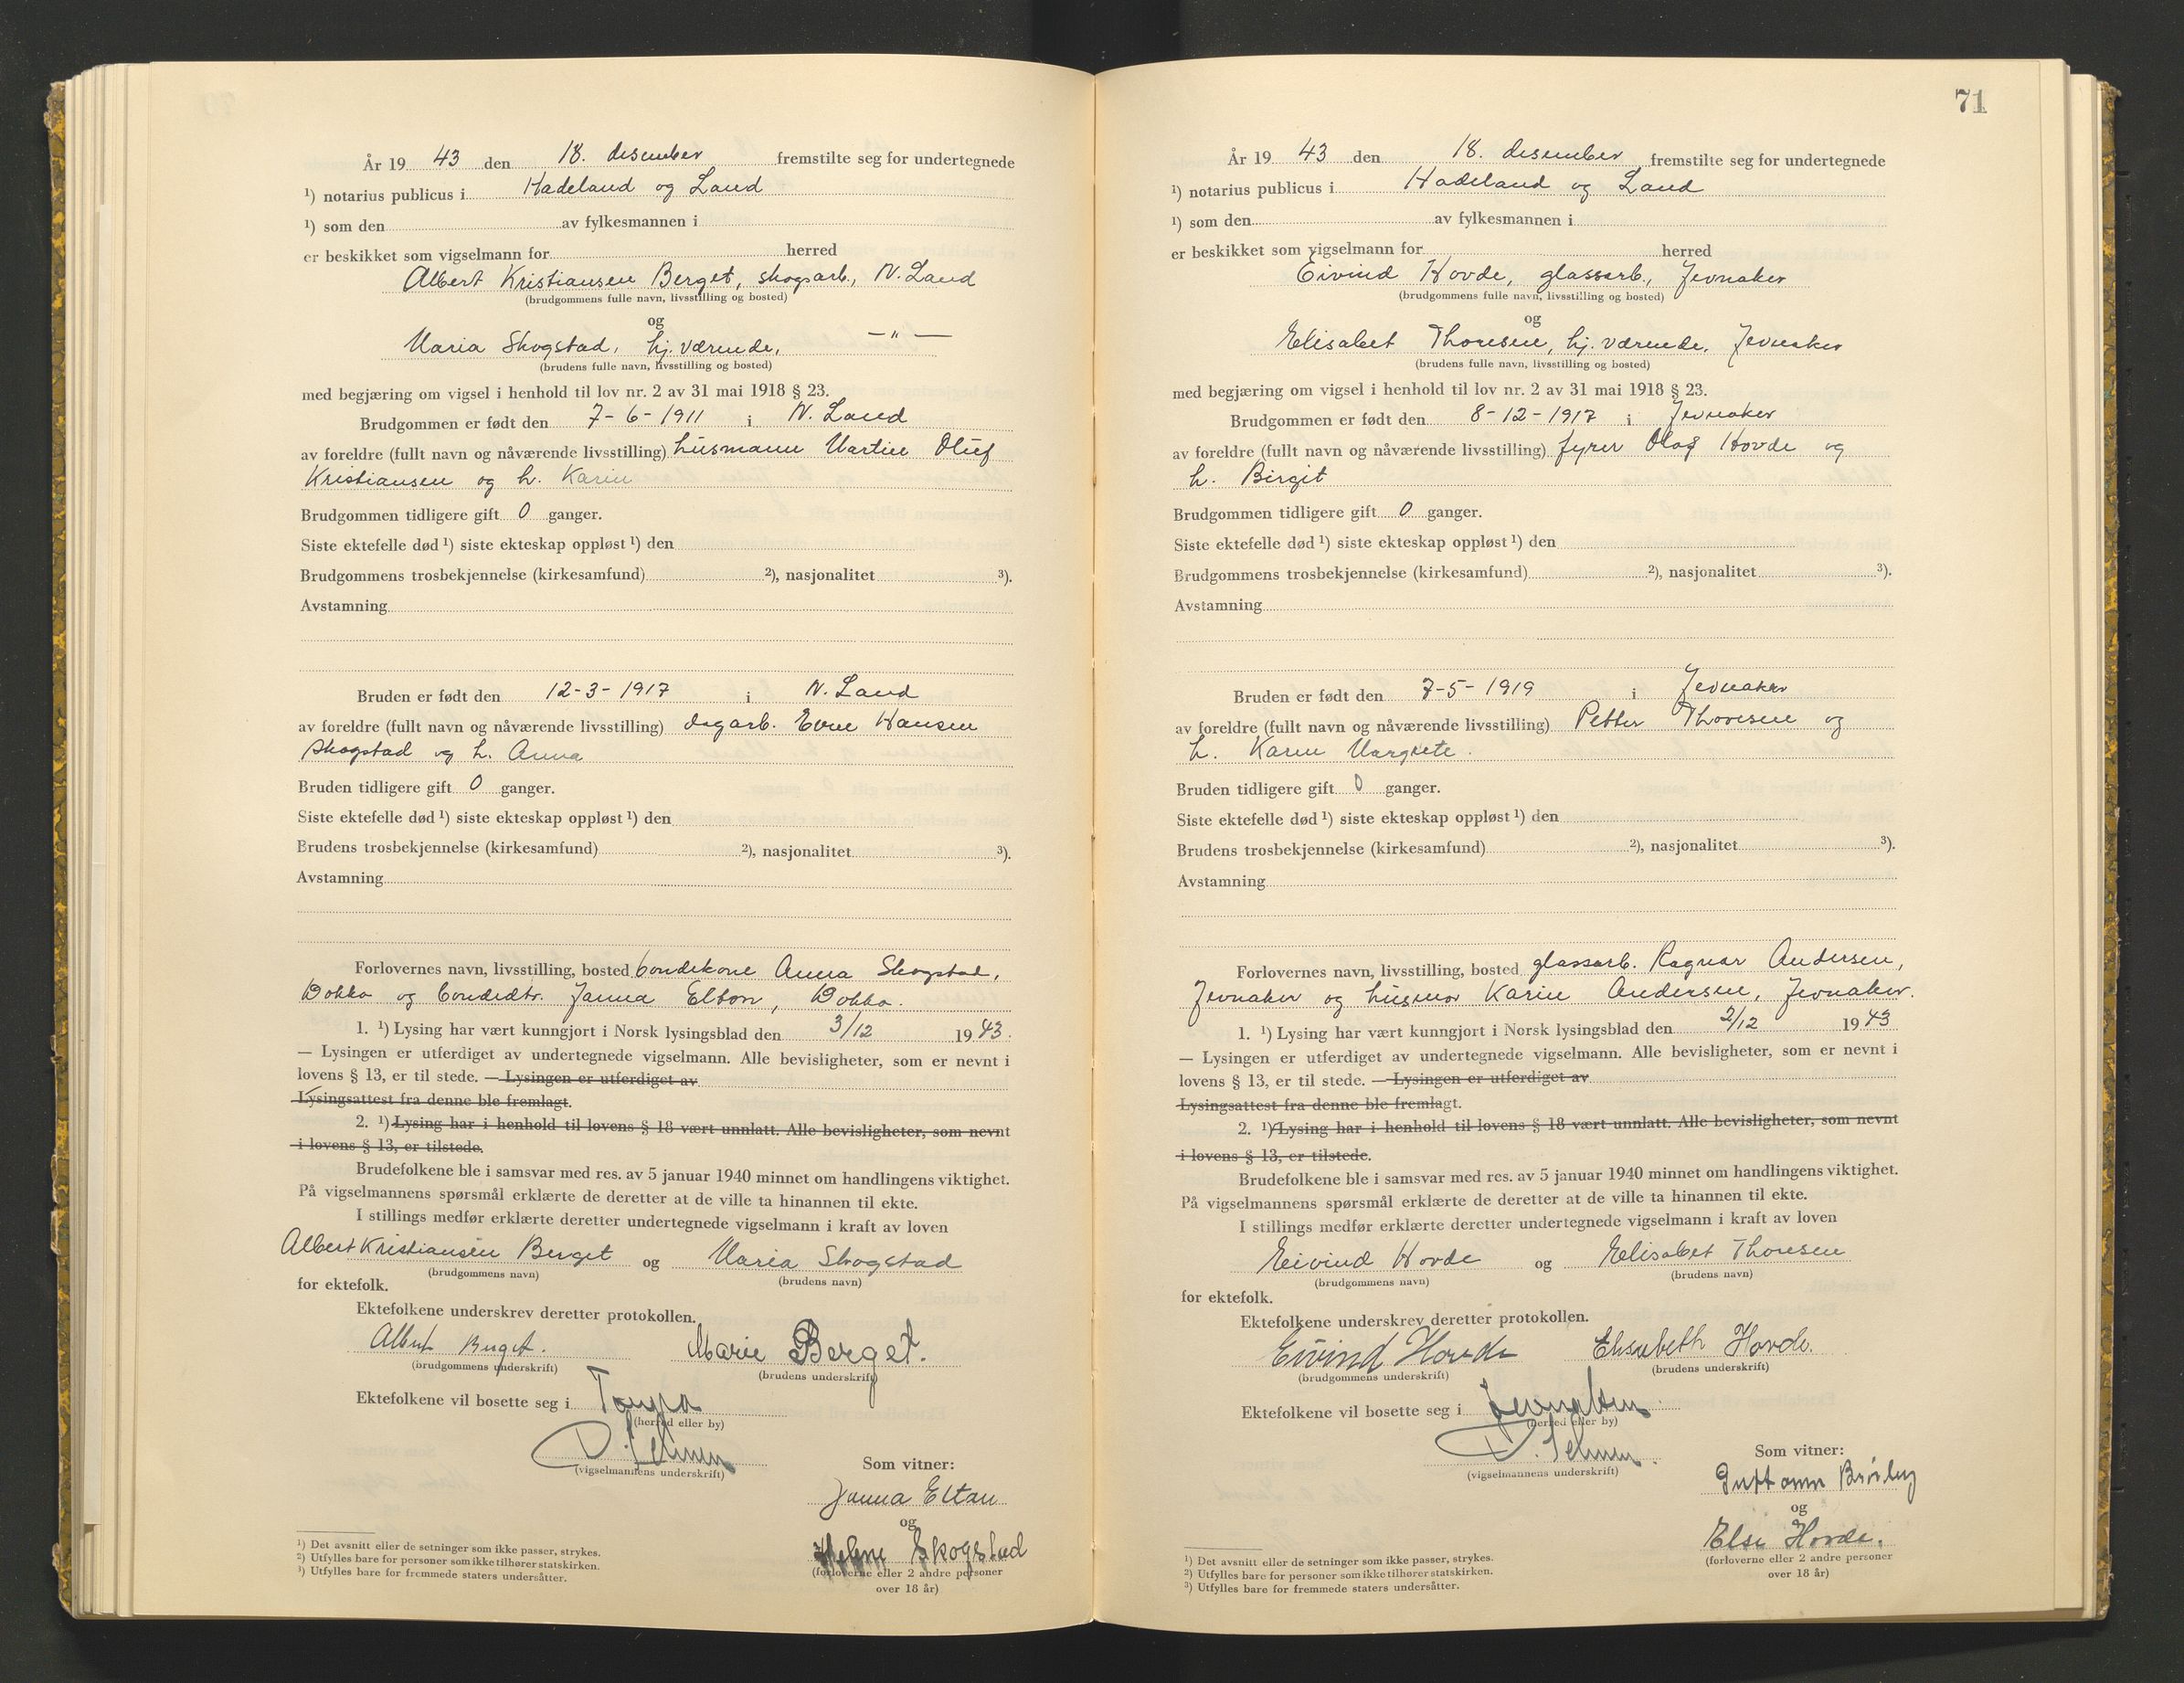 År 19 43 den 18. desember fremstilte seg for undertegnede
¹) notarius publicus i Hadeland og Land
¹) som den av fylkesmannen i
er beskikket som vigselmann for herred
Albert Kristiansen Berget, skogsarb., N. Land
(brudgommens fulle navn, livsstilling og bosted)
og
Maria Skogstad, hj. værende, — " —
(brudens fulle navn, livsstilling og bosted)
med begjæring om vigsel i henhold til lov nr. 2 av 31 mai 1918 § 23.
Brudgommen er født den 7-6-1911 i N. Land
av foreldre (fullt navn og nåværende livsstilling) husmann Martin Oluf
Kristiansen og h. Karin
Brudgommen tidligere gift 0 ganger.
Siste ektefelle død ¹) siste ekteskap oppløst ¹) den
Brudgommens trosbekjennelse (kirkesamfund) ²), nasjonalitet ³).
Avstamning
Bruden er født den 12-3-1917 i N. Land
av foreldre (fullt navn og nåværende livsstilling) dagarb. Even Hansen
Skogstad og h. Anna
Bruden tidligere gift 0 ganger.
Siste ektefelle død ¹) siste ekteskap oppløst ¹) den
Brudens trosbekjennelse (kirkesamfund) ²), nasjonalitet ³).
Avstamning
Forlovernes navn, livsstilling, bosted bondekone Anna Skogstad,
Dokka og bondedtr. Janna Elton, Dokka.
1. ¹) Lysing har vært kunngjort i Norsk lysingsblad den 3/12 1943.
— Lysingen er utferdiget av undertegnede vigselmann. Alle bevisligheter, som er nevnt i
lovens § 13, er til stede. — Lysingen er utferdiget av
Lysingsattest fra denne ble fremlagt.
2. ¹) Lysing har i henhold til lovens § 18 vært unnlatt. Alle bevisligheter, som nevnt
i lovens § 13, er tilstede.
Brudefolkene ble i samsvar med res. av 5 januar 1940 minnet om handlingens viktighet.
På vigselmannens spørsmål erklærte de deretter at de ville ta hinannen til ekte.
I stillings medfør erklærte deretter undertegnede vigselmann i kraft av loven
Albert Kristiansen Berget og Maria Skogstad
(brudgommens navn) (brudens navn)
for ektefolk.
Ektefolkene underskrev deretter protokollen.
Albert Berget. Marie Berget.
(brudgommens underskrift) (brudens underskrift)
Ektefolkene vil bosette seg i Torpa
(herred eller by)
(vigselmannens underskrift)
Som vitner:
Janna Eltan
og
Helene Skogstad
(forloverne eller 2 andre personer
over 18 år)
¹) Det avsnitt eller de setninger som ikke passer, strykes.
²) Utfylles bare for personer som ikke tilhører statskirken.
³) Utfylles bare for fremmede staters undersåtter.
71
År 19 43 den 18. desember fremstilte seg for undertegnede
¹) notarius publicus i Hadeland og Land
¹) som den av fylkesmannen i
er beskikket som vigselmann for herred
Eivind Hovde, glassarb., Jevnaker
(brudgommens fulle navn, livsstilling og bosted)
og
Elisabet Thoresen, hj. værende, Jevnaker
(brudens fulle navn, livsstilling og bosted)
med begjæring om vigsel i henhold til lov nr. 2 av 31 mai 1918 § 23.
Brudgommen er født den 8-12-1917 i Jevnaker
av foreldre (fullt navn og nåværende livsstilling) fyrer Olaf Hovde og
h. Birgit
Brudgommen tidligere gift 0 ganger.
Siste ektefelle død ¹) siste ekteskap oppløst ¹) den
Brudgommens trosbekjennelse (kirkesamfund) ²), nasjonalitet ³).
Avstamning
Bruden er født den 7-5-1919 i Jevnaker
av foreldre (fullt navn og nåværende livsstilling) Petter Thoresen og
h. Karen Margrete.
Bruden tidligere gift 0 ganger.
Siste ektefelle død ¹) siste ekteskap oppløst ¹) den
Brudens trosbekjennelse (kirkesamfund) ²), nasjonalitet ³).
Avstamning
Forlovernes navn, livsstilling, bosted glassarb. Ragnar Andersen,
Jevnaker og husmor Karin Andersen, Jevnaker.
1. ¹) Lysing har vært kunngjort i Norsk lysingsblad den 2/12 1943
— Lysingen er utferdiget av undertegnede vigselmann. Alle bevisligheter, som er nevnt i
lovens § 13, er til stede. — Lysingen er utferdiget av
Lysingsattest fra denne ble fremlagt.
2. ¹) Lysing har i henhold til lovens § 18 vært unnlatt. Alle bevisligheter, som nevnt
i lovens § 13, er tilstede.
Brudefolkene ble i samsvar med res. av 5 januar 1940 minnet om handlingens viktighet.
På vigselmannens spørsmål erklærte de deretter at de ville ta hinannen til ekte.
I stillings medfør erklærte deretter undertegnede vigselmann i kraft av loven
Eivind Hovde og Elisabet Thoresen
(brudgommens navn) (brudens navn)
for ektefolk.
Ektefolkene underskrev deretter protokollen.
Eivind Hovde Elisabeth Hovde.
(brudgommens underskrift) (brudens underskrift)
Ektefolkene vil bosette seg i Jevnaker
(herred eller by)
(vigselmannens underskrift)
Som vitner:
og
Else Hovde.
(forloverne eller 2 andre personer
over 18 år)
¹) Det avsnitt eller de setninger som ikke passer, strykes.
²) Utfylles bare for personer som ikke tilhører statskirken.
³) Utfylles bare for fremmede staters undersåtter.